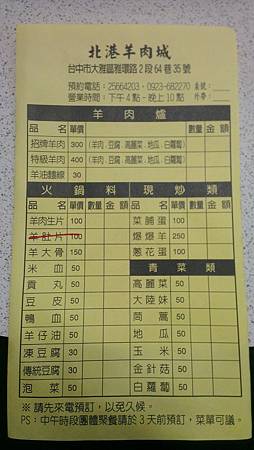 北港羊肉城
台中市大雅區雅環路2段64巷35號
預約電話:25664203、0923-682270 桌號:
營業時間:下午4點-晚上10點 外帶:
羊肉爐
品名 單價 數量 金額
招牌羊肉 300 (羊肉.豆腐.高麗菜.地瓜.白蘿蔔)
特級羊肉 400 (羊肉.豆腐.高麗菜.地瓜.白蘿蔔)
羊油麵線 30
火鍋料 現炒類
品名 單價 數量 金額 品名 單價 數量 金額
羊肉生片 100 菜脯蛋 100
羊肚片 100 爆爆羊 250
羊大骨 150 蔥花蛋 100
米血 50 青菜類
貢丸 50 高麗菜 50
豆皮 50 大陸妹 50
鴨血 50 茼蒿 50
羊仔油 50 地瓜 50
凍豆腐 30 玉米 50
傳統豆腐 30 金針菇 50
泡菜 50 白蘿蔔 50
※ 請先來電預訂,以免久候。
PS:中午時段團體聚餐請於3天前預訂,菜單可議。